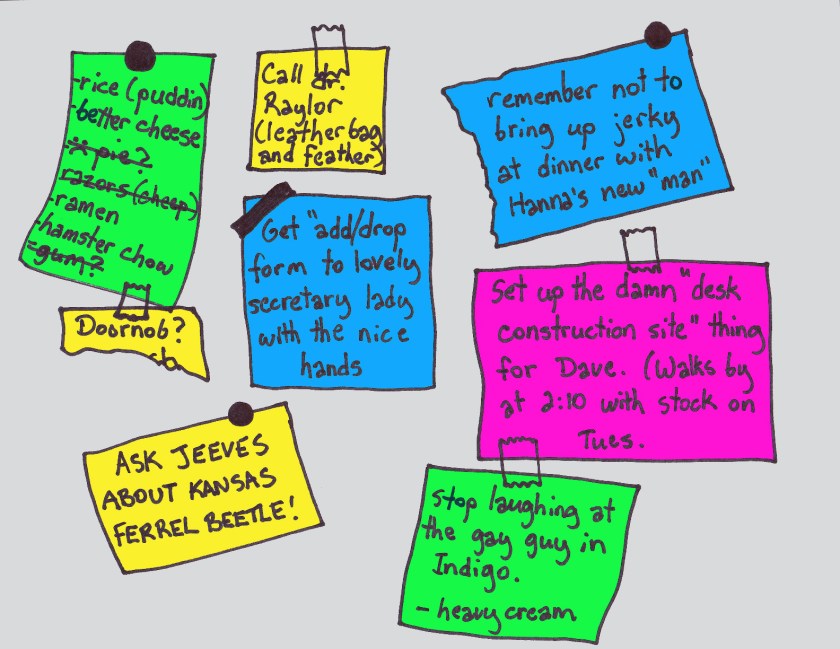 -rice (puddin)
-better cheese
-pie?
razors (cheep)
-ramen
-hamster chow
-gum?
Doornob?
Call dr.
Raylor
(leather bag
and feather)
Get "add/drop
form to lovely
secretary lady
with the nice
hands
remember not to
bring up jerky
at dinner with
Hanna's new "man"
Set up the damn "desk
construction site" thing
for Dave. (Walks by
at 2:10 with stock on
Tues.
ASK JEEVES
ABOUT KANSAS
FERREL BEETLE!
Stop laughing at
the gay guy in
Indigo.
- heavy cream